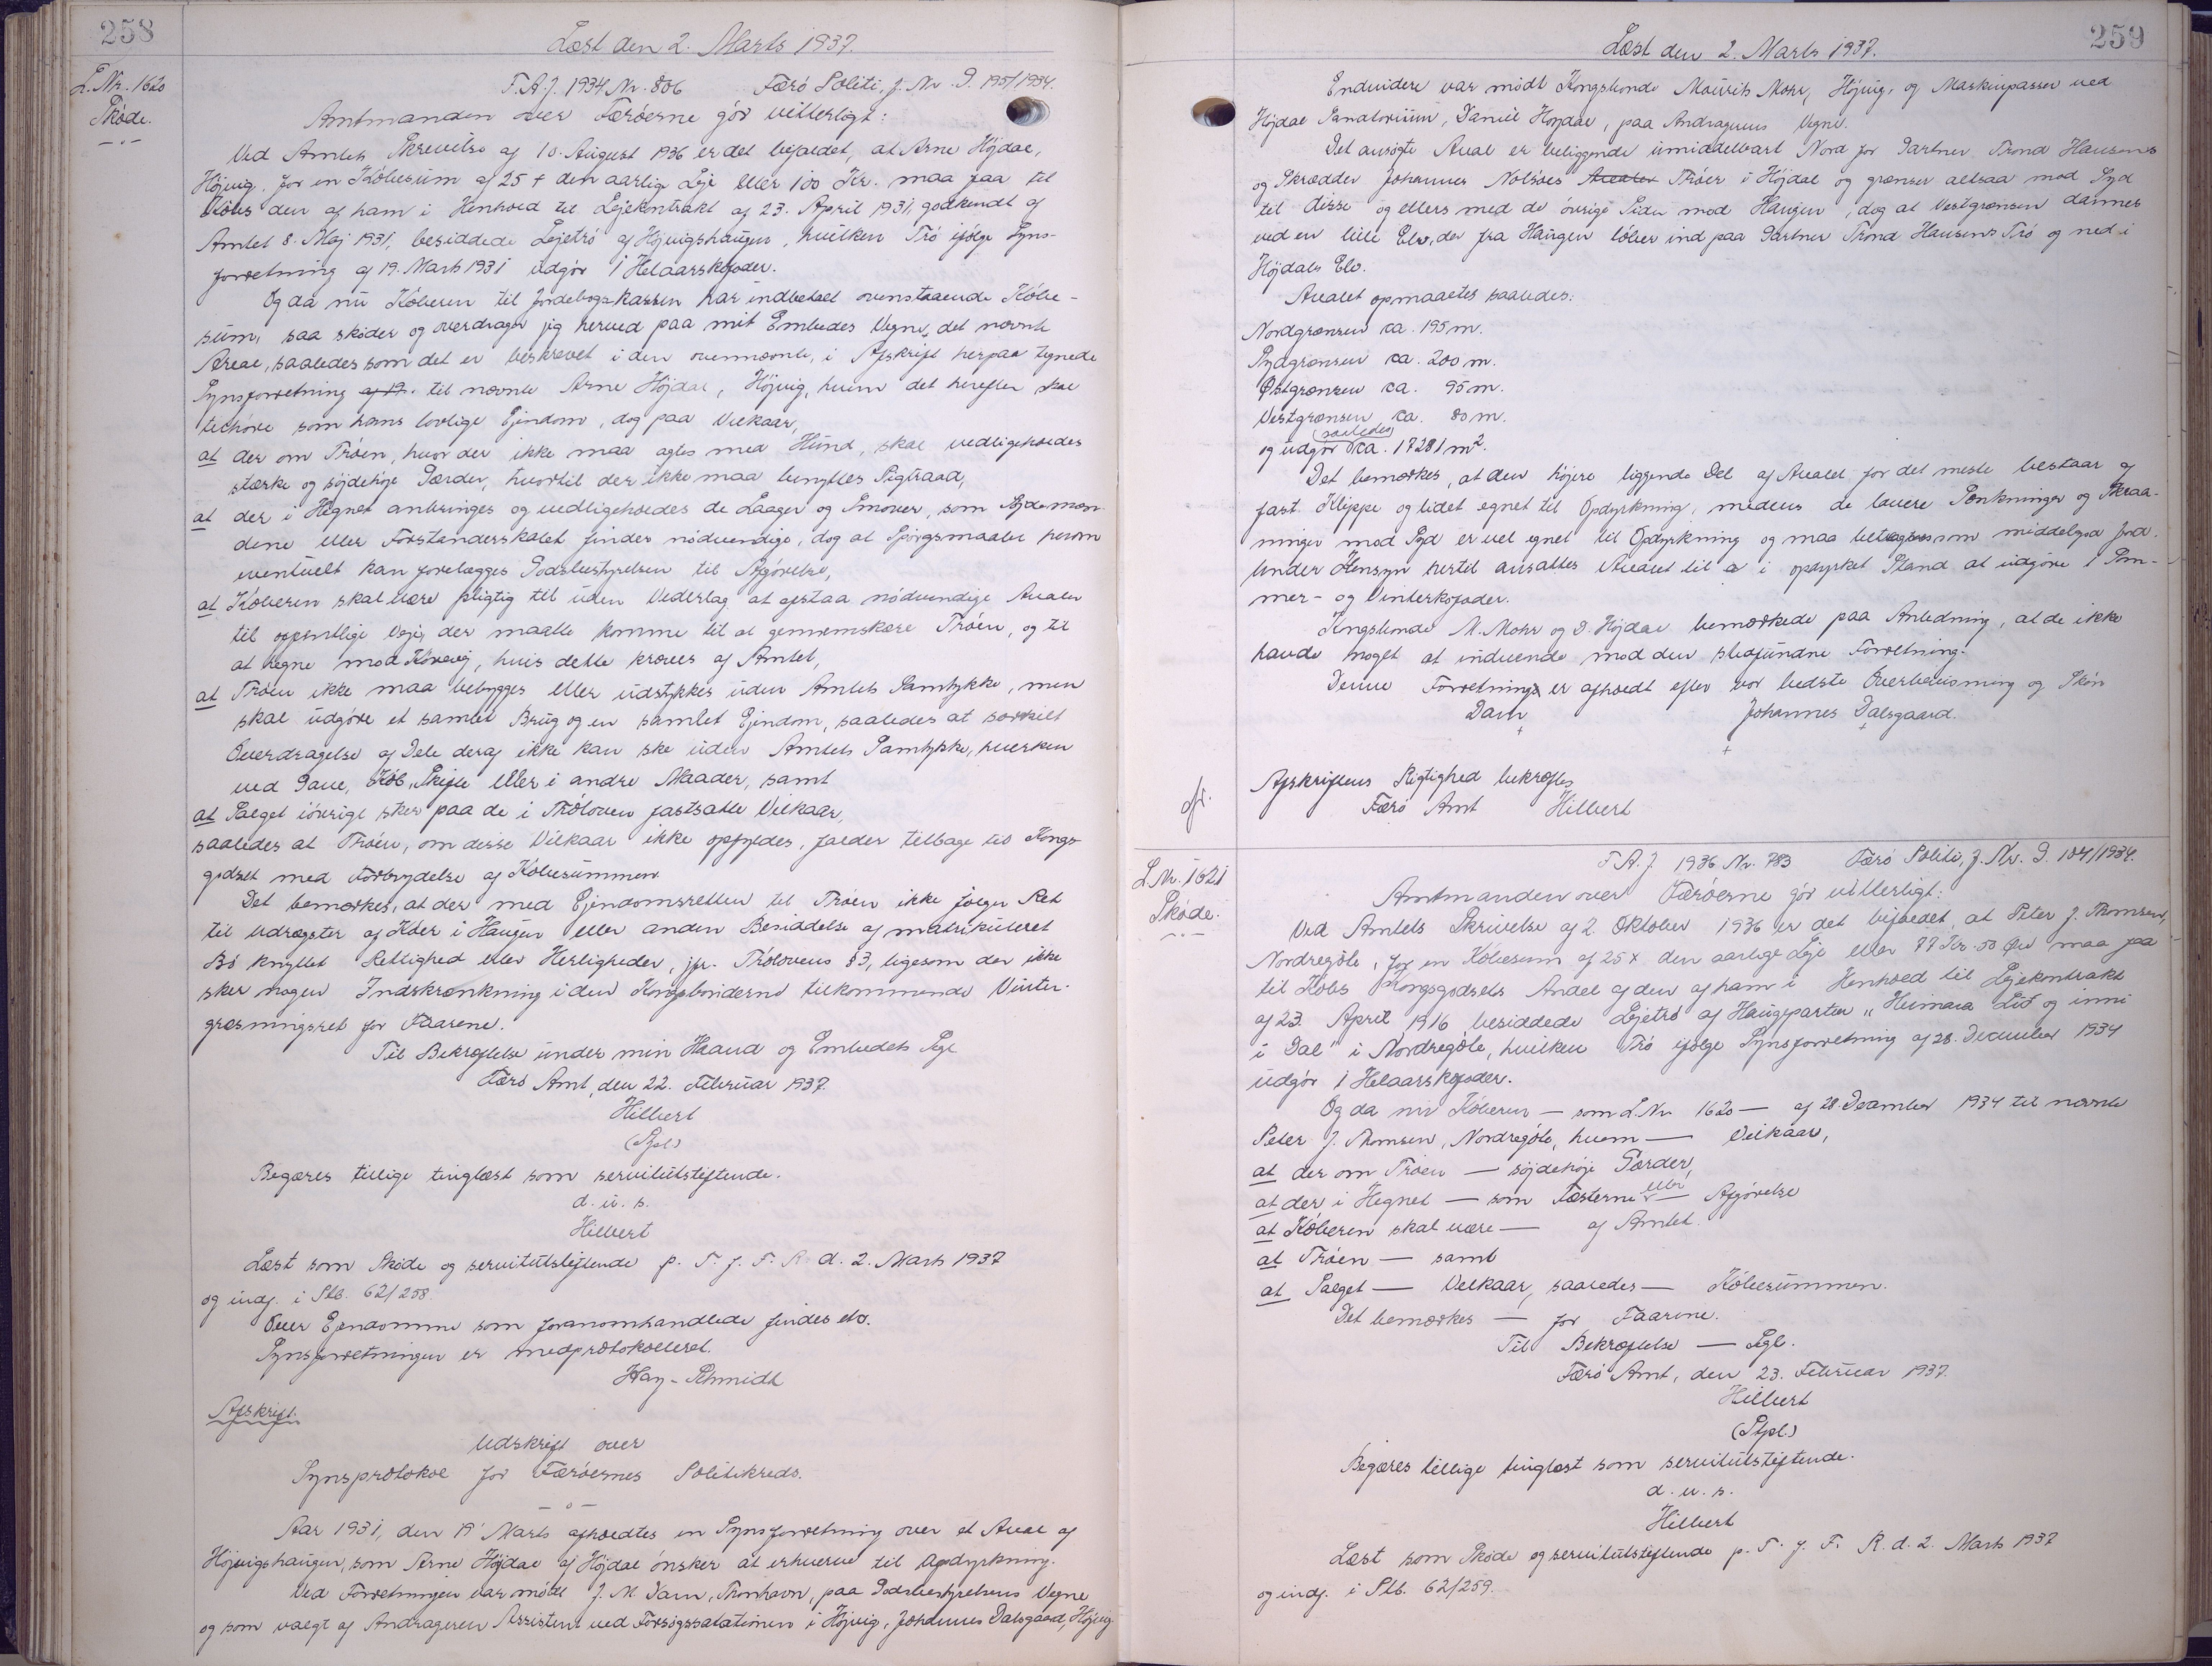 258
Læst den 2. Marts 1937.
L. Nr. 1620
Skøde.
F.A.J. 1934 Nr. 806 Færø Politi, J. Nr. I. 195/1934.
Amtmanden over Færøerne gör vitterligt:
Ved Amtets Skrivelse af 10. August 1936 er det bifaldet, at Arne Höjdal,
Höjvig, for en Købesum af 25 × den aarlige Leje eller 100 Kr. maa faa til
Købs den af ham i Henhold til Lejekontrakt af 23. April 1931, godkendt af
Amtet 8. Maj 1931, besiddede Lejetrö af Höjvigshaugen, hvilken Trö ifølge Syns-
forretning af 19. Marts 1931 udgør 1 Helaarskofoder.
Og da nu Köberen til Jordebogskassen har indbetalt ovenstaaende Købe-
sum, saa sköder og overdrager jeg herved paa mit Embedes Vegne det nævnte
Areal, saaledes som det er beskrevet i den ovennævnte, i Afskrift herpaa tegnede
Synsforretning af 19. til nævnte Arne Höjdal, Höjvig, hvem det herefter skal
tilhøre som hans lovlige Ejendom, dog paa Vilkaar,
at der om Tröen, hvor der ikke maa agtes med Hund, skal vedligeholdes
stærke og söjdehöje Gærder, hvortil der ikke maa benyttes Pigtraad,
at der i Hegnet anbringes og vedligeholdes de Laager og Smover, som Sysselmæn-
dene eller Forstanderskabet finder nödvendige, dog at Spörgsmaalet herom
eventuelt kan forelægges Godsbestyrelsen til Afgørelse,
at Köberen skal være pligtig til uden Vederlag at afstaa nödvendige Arealer
til offentlige Veje, der maatte komme til at gennemskære Tröen, og til
at hegne mod Kørevej, hvis dette kræves af Amtet,
at Tröen ikke maa bebygges eller udstykkes uden Amtets Samtykke, men
skal udgöre et samlet Brug og en samlet Ejendom, saaledes at særskilt
Overdragelse af Dele deraf ikke kan ske uden Amtets Samtykke, hverken
ved Gave, Köb, Skifte eller i andre Maader, samt
at Salget iövrigt sker paa de i Tröloven fastsatte Vilkaar,
saaledes at Tröen, om disse Vilkaar ikke opfyldes, falder tilbage til Kongs-
godset med Fortrydelse af Købesummen
Det bemærkes, at der med Ejendomsretten til Tröen ikke følger Ret
til Udrægster af Köer i Haugen eller anden Besiddelse af matrikuleret
Bö knyttet Rettighed eller Herligheder, jfr. Trölovens § 3, ligesom der ikke
sker nogen Indskrænkning i den Kongsbönderne tilkommende Vinter-
græsningsret for Faarene.
Til Bekræftelse under min Haand og Embedets Segl
Færö Amt, den 22. Februar 1937.
Hilbert
(Stpl.)
Begæres tillige tinglæst som servitutstiftende.
d. u. s.
Hilbert
Læst som Sköde og servitutstiftende p. T. f. F. R. d. 2. Marts 1937
og indf. i Skb. 62/258.
Over Ejendomme som foranomhandlede findes etc.
Synsforretningen er medprotokolleret.
Hay-Schmidt
Afskrift.
Udskrift over
Synsprotokol for Færöernes Politikreds.
Aar 1931, den 19' Marts afholdtes en Synsforretning over et Areal af
Höjvigshaugen, som Arne Höjdal af Höjdal önsker at erhverve til Opdyrkning.
Ved Forretningen var mödt J. M. Dam, Thorshavn, paa Godsbestyrelsens Vegne
og som valgt af Andrageren Assistent ved Forsögsstationen i Höjvig, Johannes Dalsgaard, Höjvig
259
Læst den 2. Marts 1937.
Endvidere var mödt Kongsbonde Mourits Mohr, Höjvig, og Maskinpasser ved
Höjdal Sanatorium, Daniel Höjdal, paa Andragerens Vegne.
Det ansögte Areal er beliggende umiddelbart Nord for Gartner Trond Hansens
og Skrædder Johannes Nolsöes Arealer Tröer i Höjdal og grænser altsaa mod Syd
til disse og ellers med de övrige Sider mod Haugen, dog at Vestgrænsen dannes
ved en lille Elv, der fra Haugen löber ind paa Gartner Trond Hansens Trö og ned i
Höjdals Elv.
Arealet opmaaltes saaledes:
Nordgrænsen ca. 195 m.
Sydgrænsen ca. 200 m.
Østgrænsen ca. 95 m.
Vestgrænsen ca. 80 m.
og udgör saaledes ca. 17281 m².
Det bemærkes, at den højere liggende Del af Arealet for det meste bestaar af
fast Klippe og lidet egnet til Opdyrkning, medens de lavere Sænkninger og Skraa-
ninger mod Syd er vel egnet til Opdyrkning og maa betegnes som middelgod Jord.
Under Hensyn hertil ansattes Arealet til i opdyrket Stand at udgöre 1 Som-
mer- og Vinterkofoder.
Kongsbonde M. Mohr og D. Höjdal bemærkede paa Anledning, at de ikke
havde noget at indvende mod den stedfundne Forretning.
Denne Forretning er afholdt efter vor bedste Overbevisning og Skön
Dam Johannes Dalsgaard.
Afskriftens Rigtighed bekræftes
Færö Amt Hilbert
L. Nr. 1621
Skøde.
F.A.J 1936 Nr. 783 Færö Politi, J. Nr. I. 104/1934.
Amtmanden over Færöerne gör vitterligt:
Ved Amtets Skrivelse af 2. Oktober 1936 er det bifaldet, at Peter J. Thomsen,
Nordregöte, for en Købesum af 25 x den aarlige Leje eller 77 Kr. 50 Øre maa faa
til Købs Kongsgodsets Andel af den af ham i Henhold til Lejekontrakt
af 23. April 1916 besiddede Lejetrö af Haugeparten "Heimara Lið og inni
i Dal" i Nordregöte, hvilken Trö ifølge Synsforretning af 28. December 1934
udgör 1 Helaarskofoder.
Og da nu Köberen — som L. Nr. 1620 — af 28. December 1934 til nævnte
Peter J. Thomsen, Nordregöte, hvem — Vilkaar,
at der om Tröen — söjdehöje Gærder,
at der i Hegnet — som Fæsterne eller — Afgörelse
at Köberen skal være — af Amtet.
at Tröen — samt
at Salget — Vilkaar, saaledes — Köbesummen.
Det bemærkes — for Faarene.
Til Bekræftelse — Segl.
Færö Amt, den 23. Februar 1937.
Hilbert
(Stpl.)
Begæres tillige tinglæst som servitutstiftende.
d. u. s.
Hilbert
Læst som Sköde og servitutstiftende p. T. f. F. R. d. 2. Marts 1937
og indf. i Skb. 62/259.